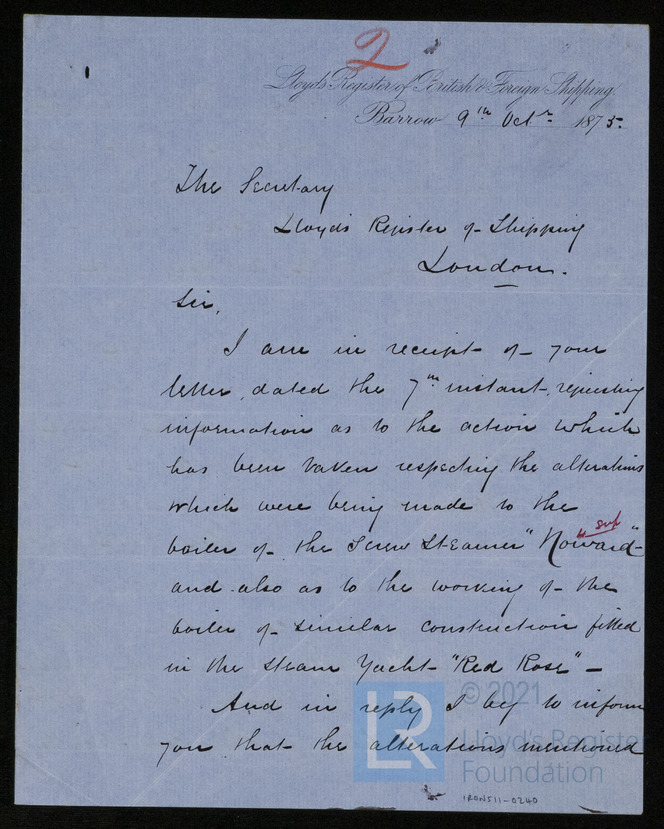 2
Lloyd's Register of British & Foreign Shipping.
Barrow 9th Octr 1875.
The Secretary
Lloyd's Register of Shipping
London.
Sir,
I am in receipt of your
letter, dated the 7th instant, requesting
information as to the action which
has been taken respecting the alterations
which were being made to the
boiler of the Screw Steamer "Howard"
and also as to the working of the
boiler of similar construction fitted
in the Steam Yacht "Red Rose" –
And in reply I beg to inform
you that the alterations mentioned
LR
© 2021
Lloyd's Register
Foundation
IRON511-0240